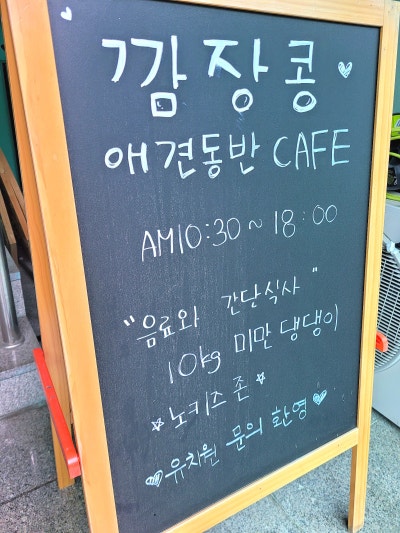 깜장콩
애견동반 CAFE
AM10:30 ~ 18:00
"음료와 간단식사"
10kg 미만 댕댕이
☆노키즈존☆
유치원 문의 환영